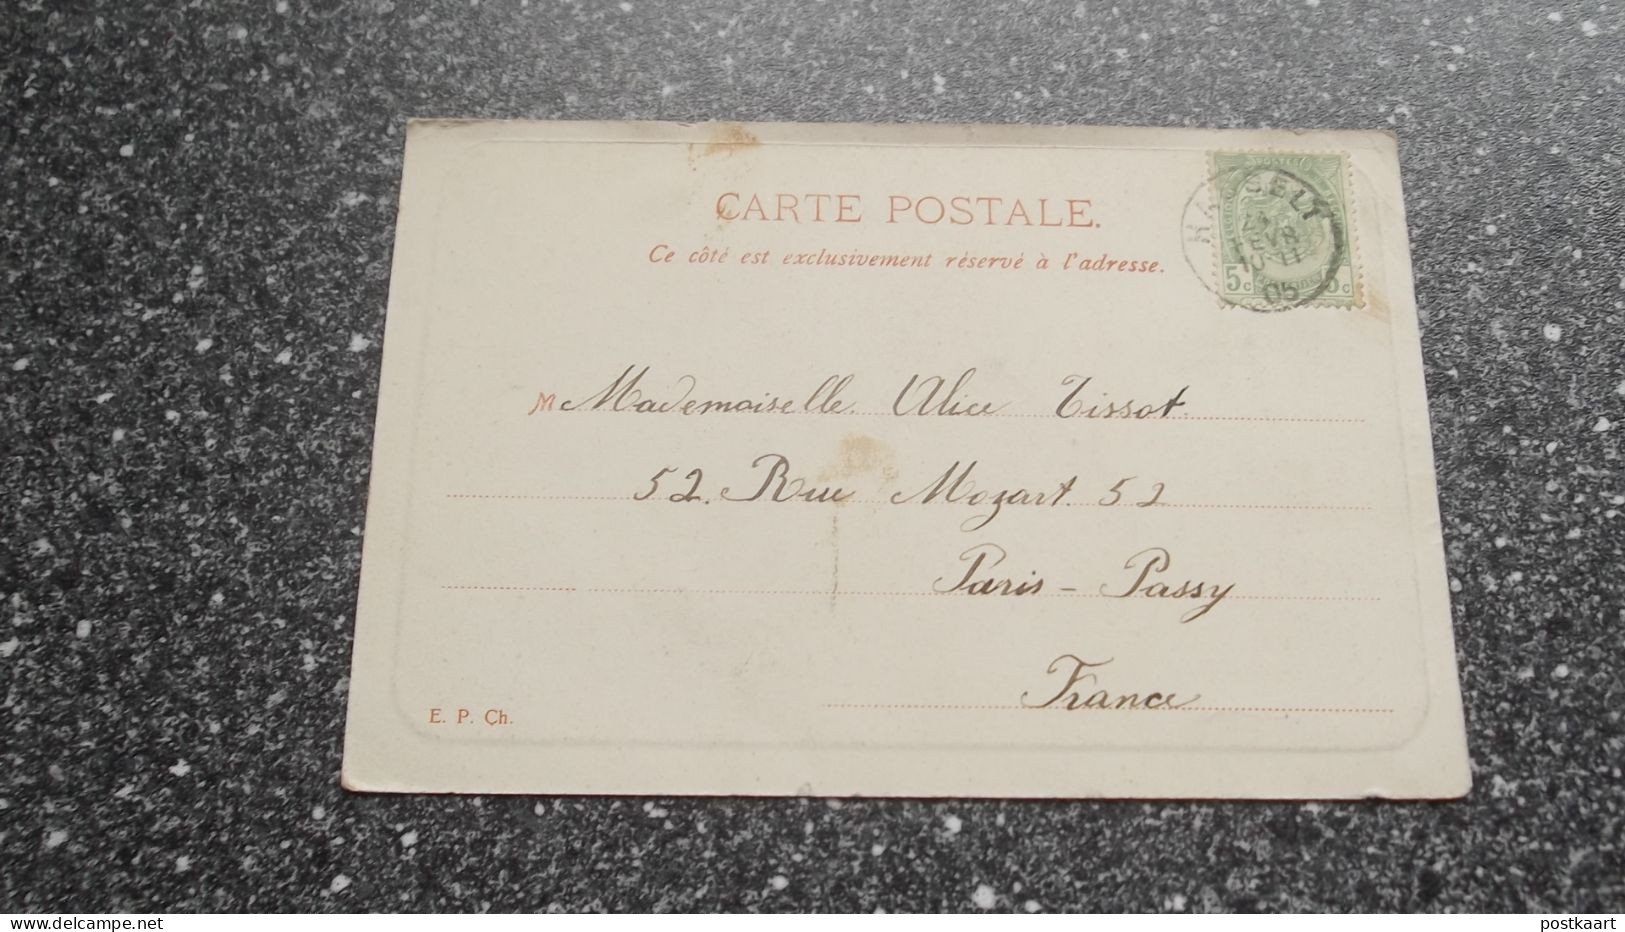 CARTE POSTALE.
Ce côté est exclusivement réservé à l'adresse.
POSTES
HASSELT
FEVR
05
5c 5c
M Mademoiselle Alice Tissot
52. Rue Mozart. 52
Paris - Passy
France
E. P. Ch.
www.delcampe.net
postkaart